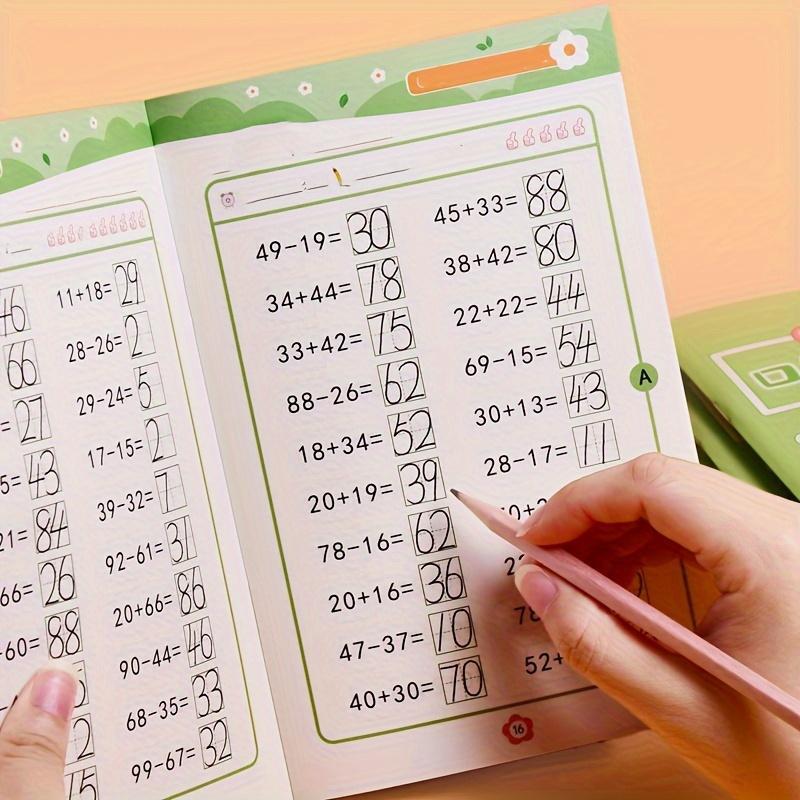 11+18=29
28-26=2
29-24=5
17-15=2
39-32=7
92-61=31
20+66=86
90-44=46
68-35=33
99-67=32
46
66
=27
5=43
21=84
66=26
-60=88
2
15
49-19=30
34+44=78
33+42=75
88-26=62
18+34=52
20+19=39
78-16=62
20+16=36
47-37=10
40+30=70
45+33=88
38+42=80
22+22=44
69-15=54
30+13=43
28-17=11
52+
A
16